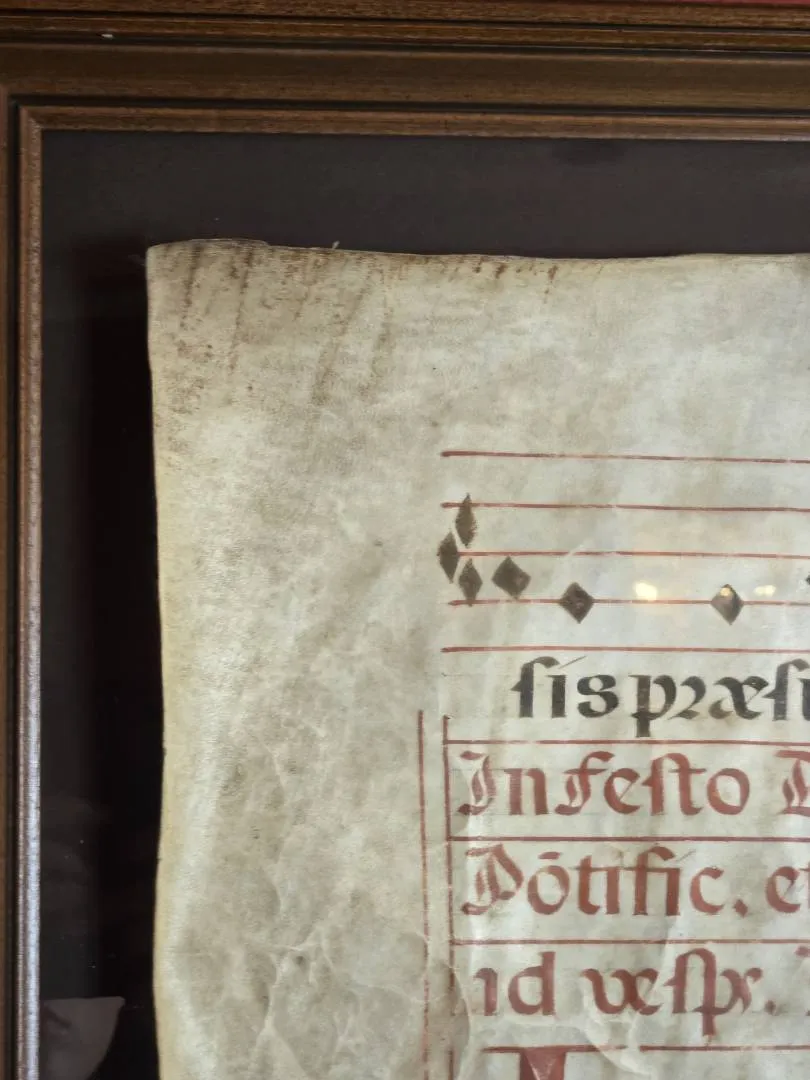 ſis præſi
In Feſto
Põtific. et
ad veſpr.